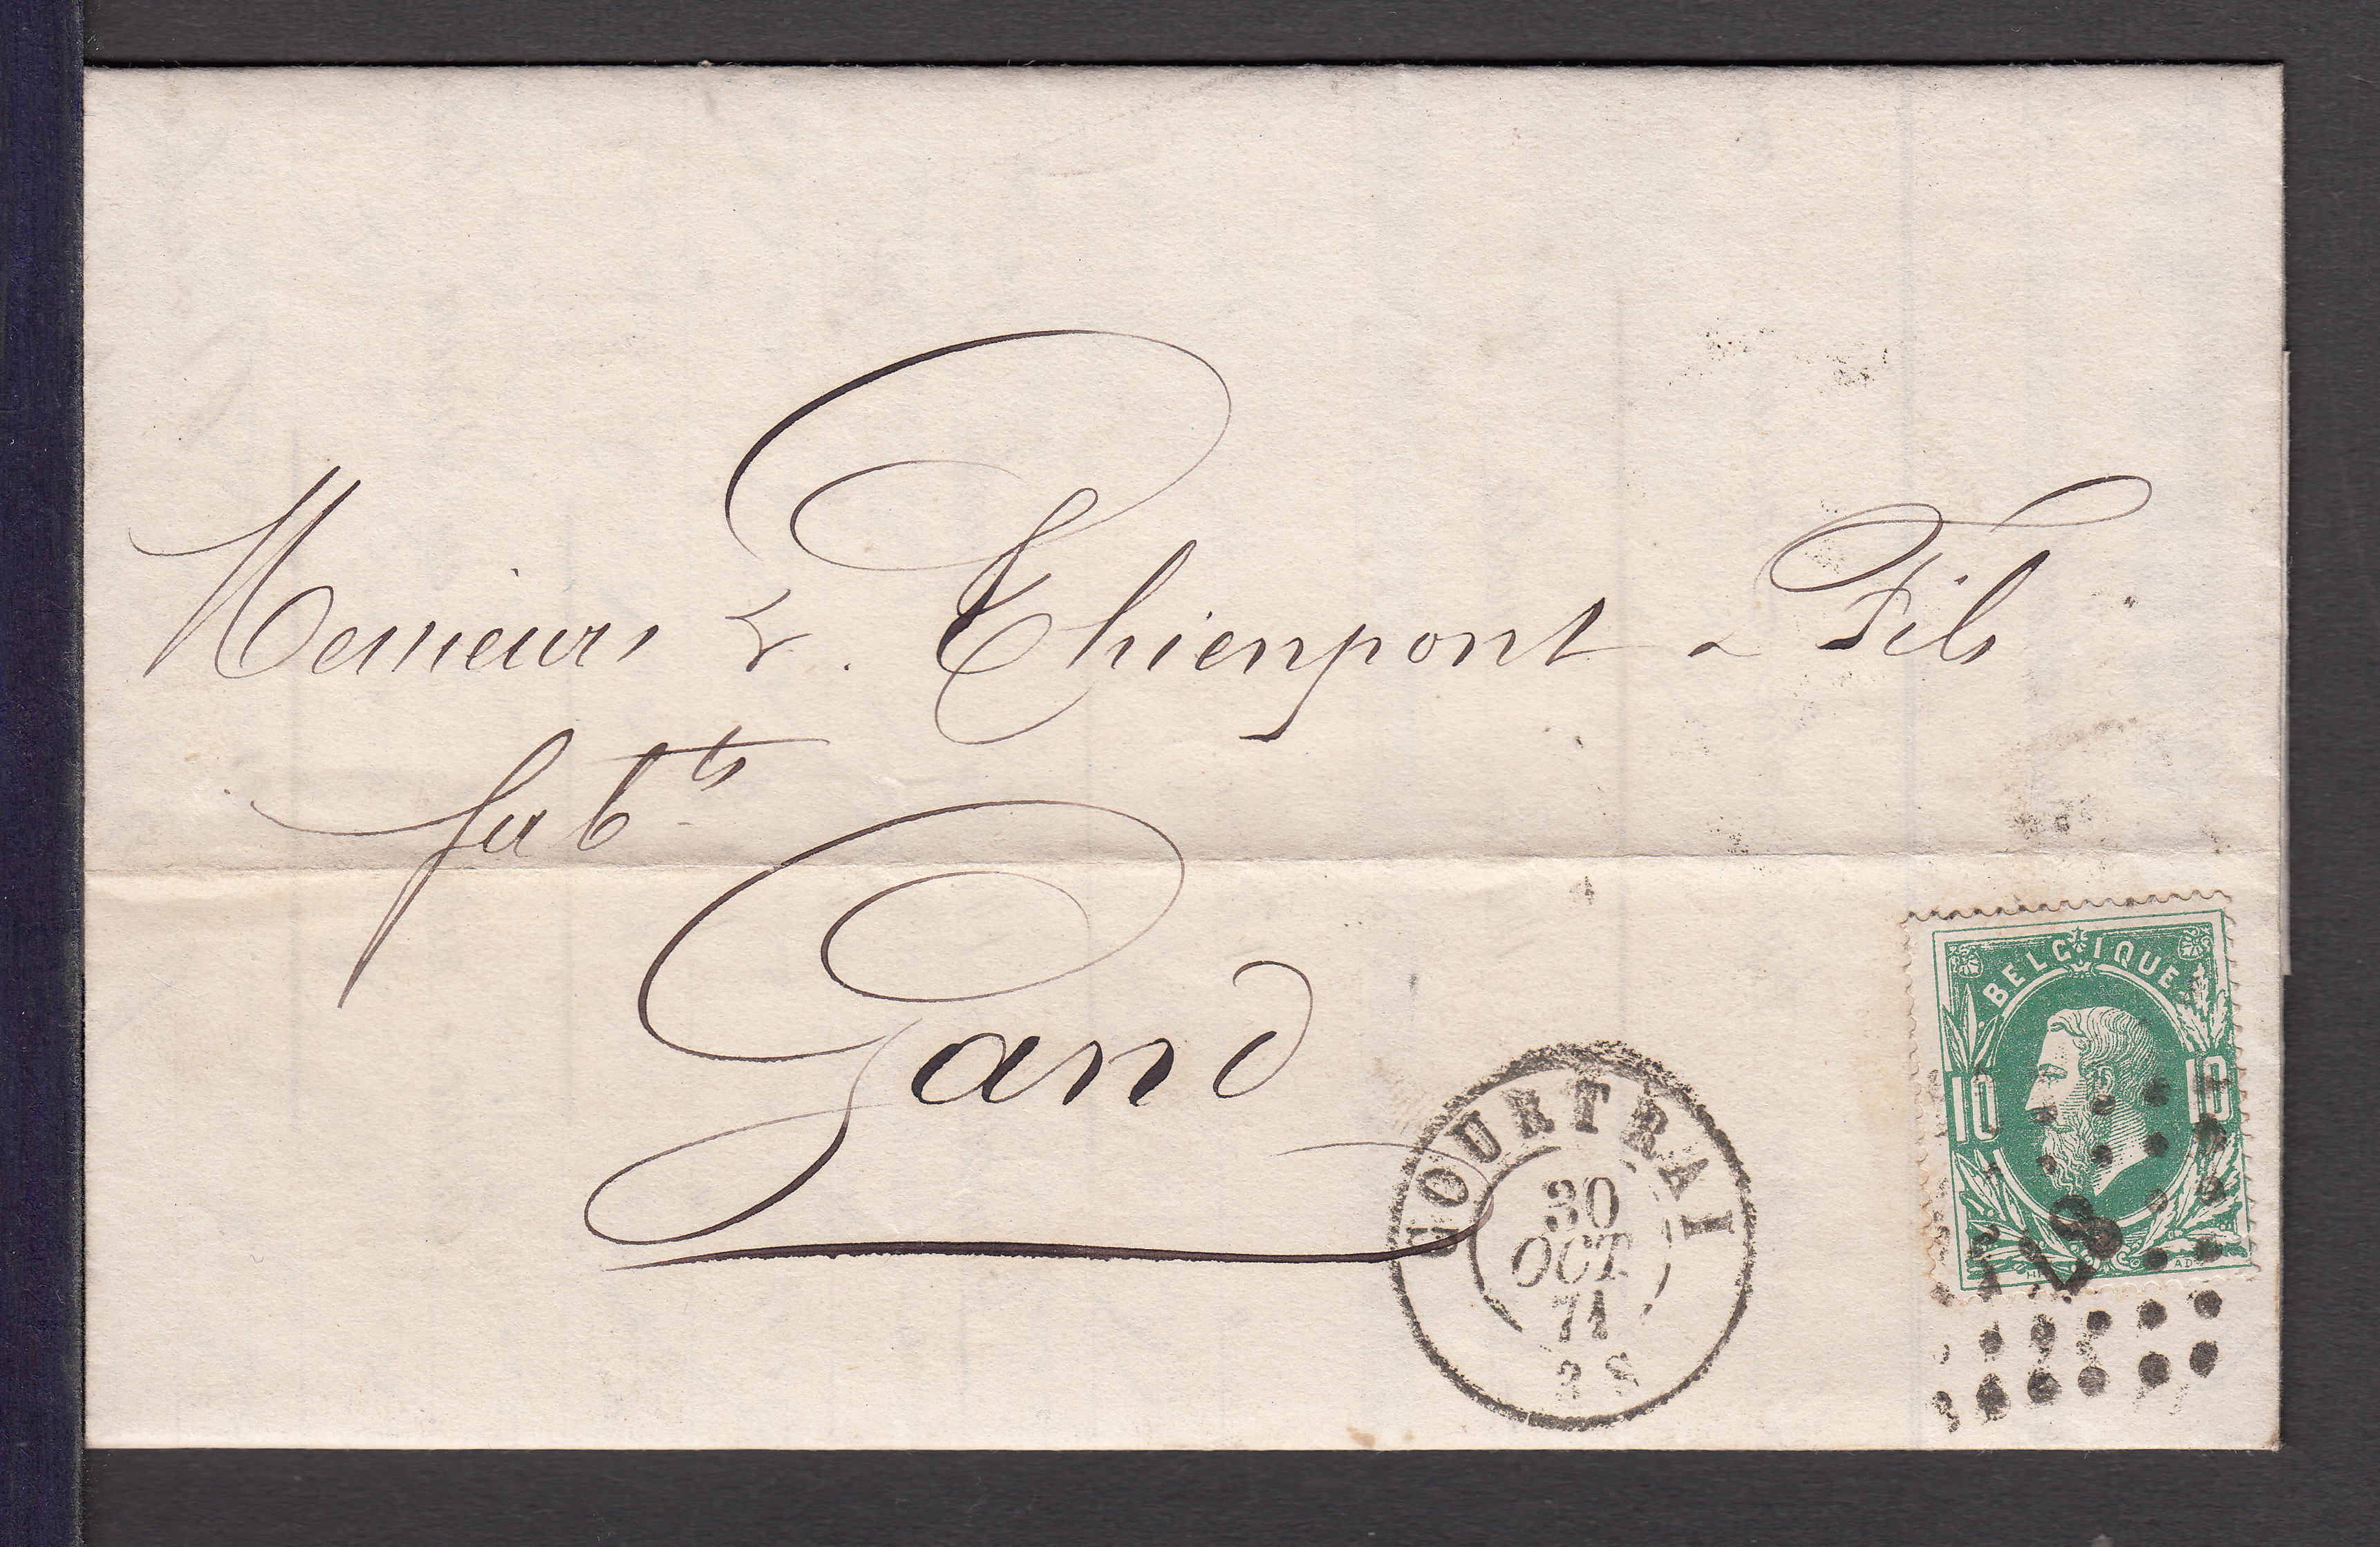 Messieurs L. Thienpont & Fils
fabts
Gand
COURTRAI
30
OCT.
71
3 S
BELGIQUE
10 10
87